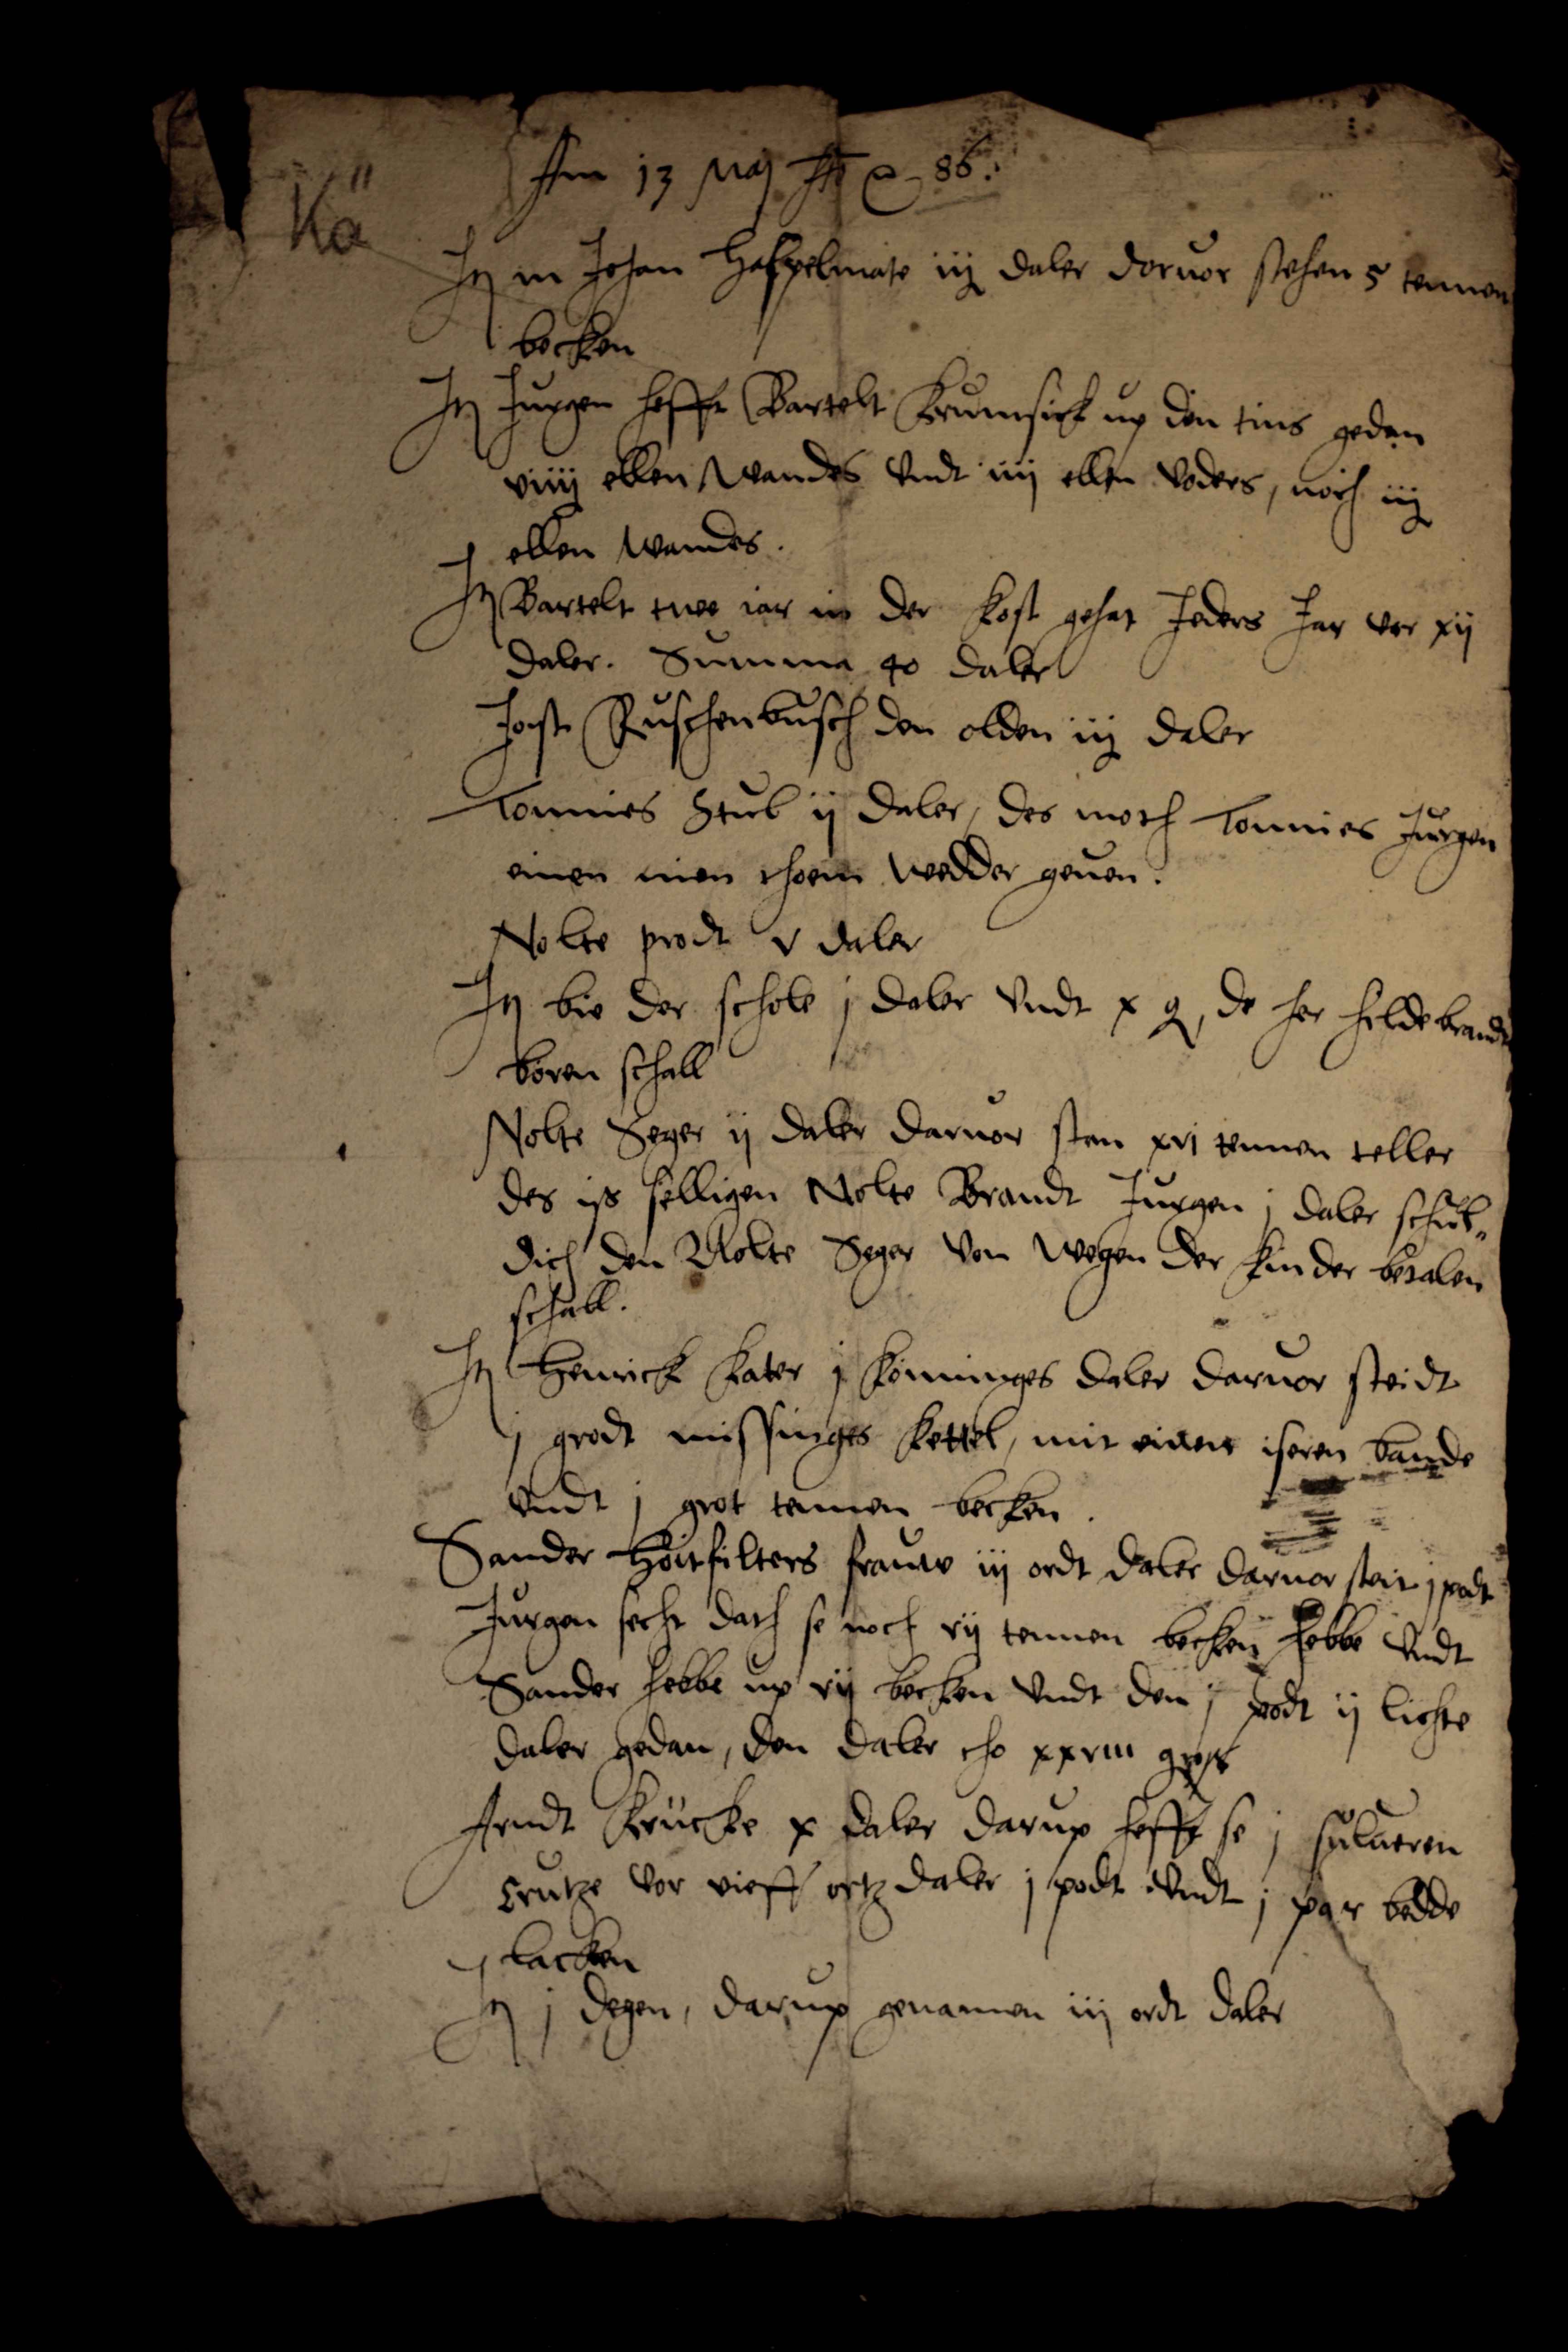 Am 13 Maij Ao 86.
Kö
Itz in Johan Haspelmate iij daler dorvor stehen 5 tennen
becken
Itz Jurgen hefft Bartelt Krumsick up den tins gedan
viiij ellen Wandes undt iiij ellen voders, noch iij
ellen wandes.
Itz Bartelt twe iar in der kost gehat Jeders Jar vor xij
daler. Summa 40 daler
Jost Ruschenbusch den olden iij daler
Tonnies Stul ij daler, des moth Tonnies Jurgen
einen nien thoem wedder geuen.
Nolte prodt v daler
Itz bie der schole j daler undt x g, de her hildebrandt
boren schall
Nolte Seger ij daler daruor stan xvj tennen teller
des iß selligen Nolte Brandt Jurgen j daler schul„
dich den Nolte Seger von wegen der kinder betalen
schall.
Itz Henrick Kater j Konninges daler daruor steidt
j grodt missinges kettel, mit einem iseren bande
undt j grot tennen becken.
Sander Hoitfilters frauw iij ordt daler daruor steit j podt
Jurgen secht dath se noch vij tennen becken hebbe undt
Sander hebbe up vij becken undt den j podt ij lichte
daler gedan, den daler tho xxviii groß
Arndt Krücke x daler darup hefft se j sulueren
Crutze vor vieff ortz daler j podt undt j par bedde
lacken
Itz j degen, darup genamen iij ordt daler